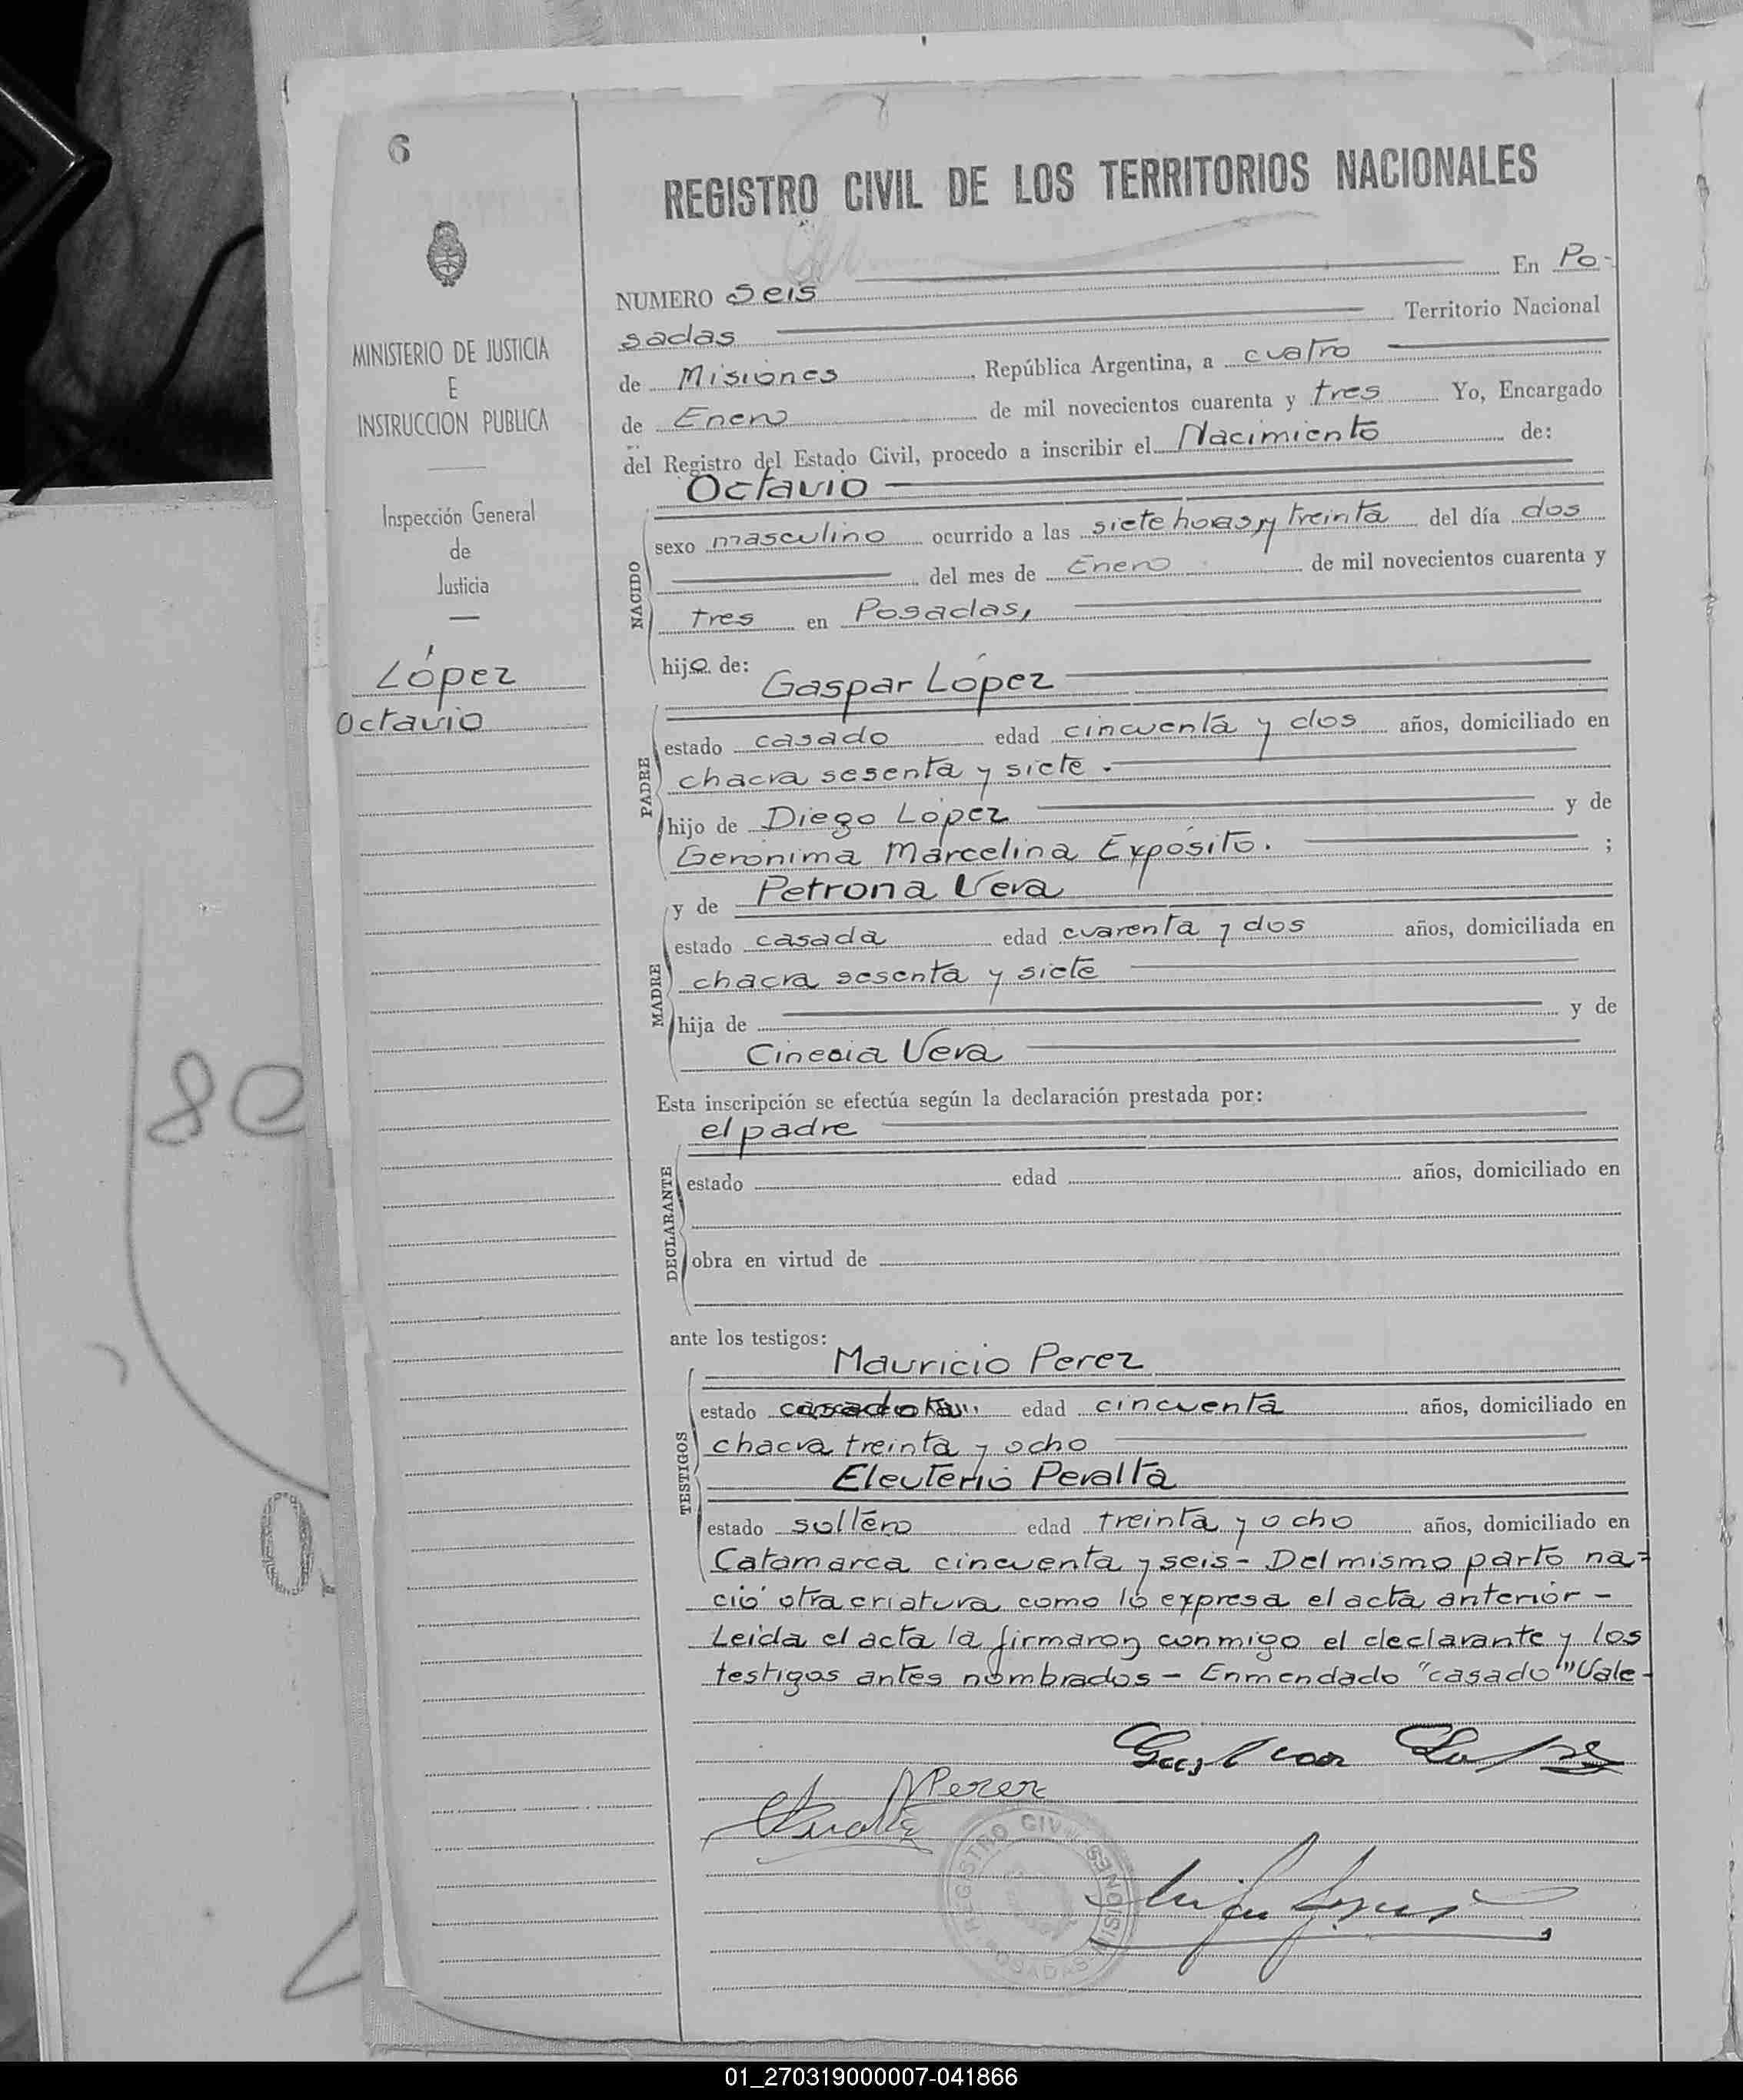 6
MINISTERIO DE JUSTICIA
E
INSTRUCCION PUBLICA
Inspección General
de
Justicia
López
Octavio
REGISTRO CIVIL DE LOS TERRITORIOS NACIONALES
NUMERO Seis En Po-
sadas Territorio Nacional
de Misiones, República Argentina, a cuatro
de Enero de mil novecientos cuarenta y tres Yo, Encargado
del Registro del Estado Civil, procedo a inscribir el Nacimiento de:
Octavio
NACIDO
sexo masculino ocurrido a las siete horas y treinta del día dos
del mes de Enero de mil novecientos cuarenta y
tres en Posadas,
hijo de:
Gaspar López
PADRE
estado casado edad cincuenta y dos años, domiciliado en
chacra sesenta y siete.
hijo de Diego López y de
Gerónima Marcelina Expósito. ;
y de Petrona Vera
MADRE
estado casada edad cuarenta y dos años, domiciliada en
chacra sesenta y siete
hija de y de
Cinecia Vera
Esta inscripción se efectúa según la declaración prestada por:
el padre
DECLARANTE
estado edad años, domiciliado en
obra en virtud de
ante los testigos:
Mauricio Perez
TESTIGOS
estado casado edad cincuenta años, domiciliado en
chacra treinta y ocho
Eleuterio Peralta
estado soltero edad treinta y ocho años, domiciliado en
Catamarca cincuenta y seis- Del mismo parto na=
ció otra criatura como lo expresa el acta anterior-
Leida el acta la firmaron conmigo el declarante y los
testigos antes nombrados- Enmendado "casado" Vale-
MPerez
REGISTRO CIVIL
MISIONES
POSADAS
80
0
01_270319000007-041866